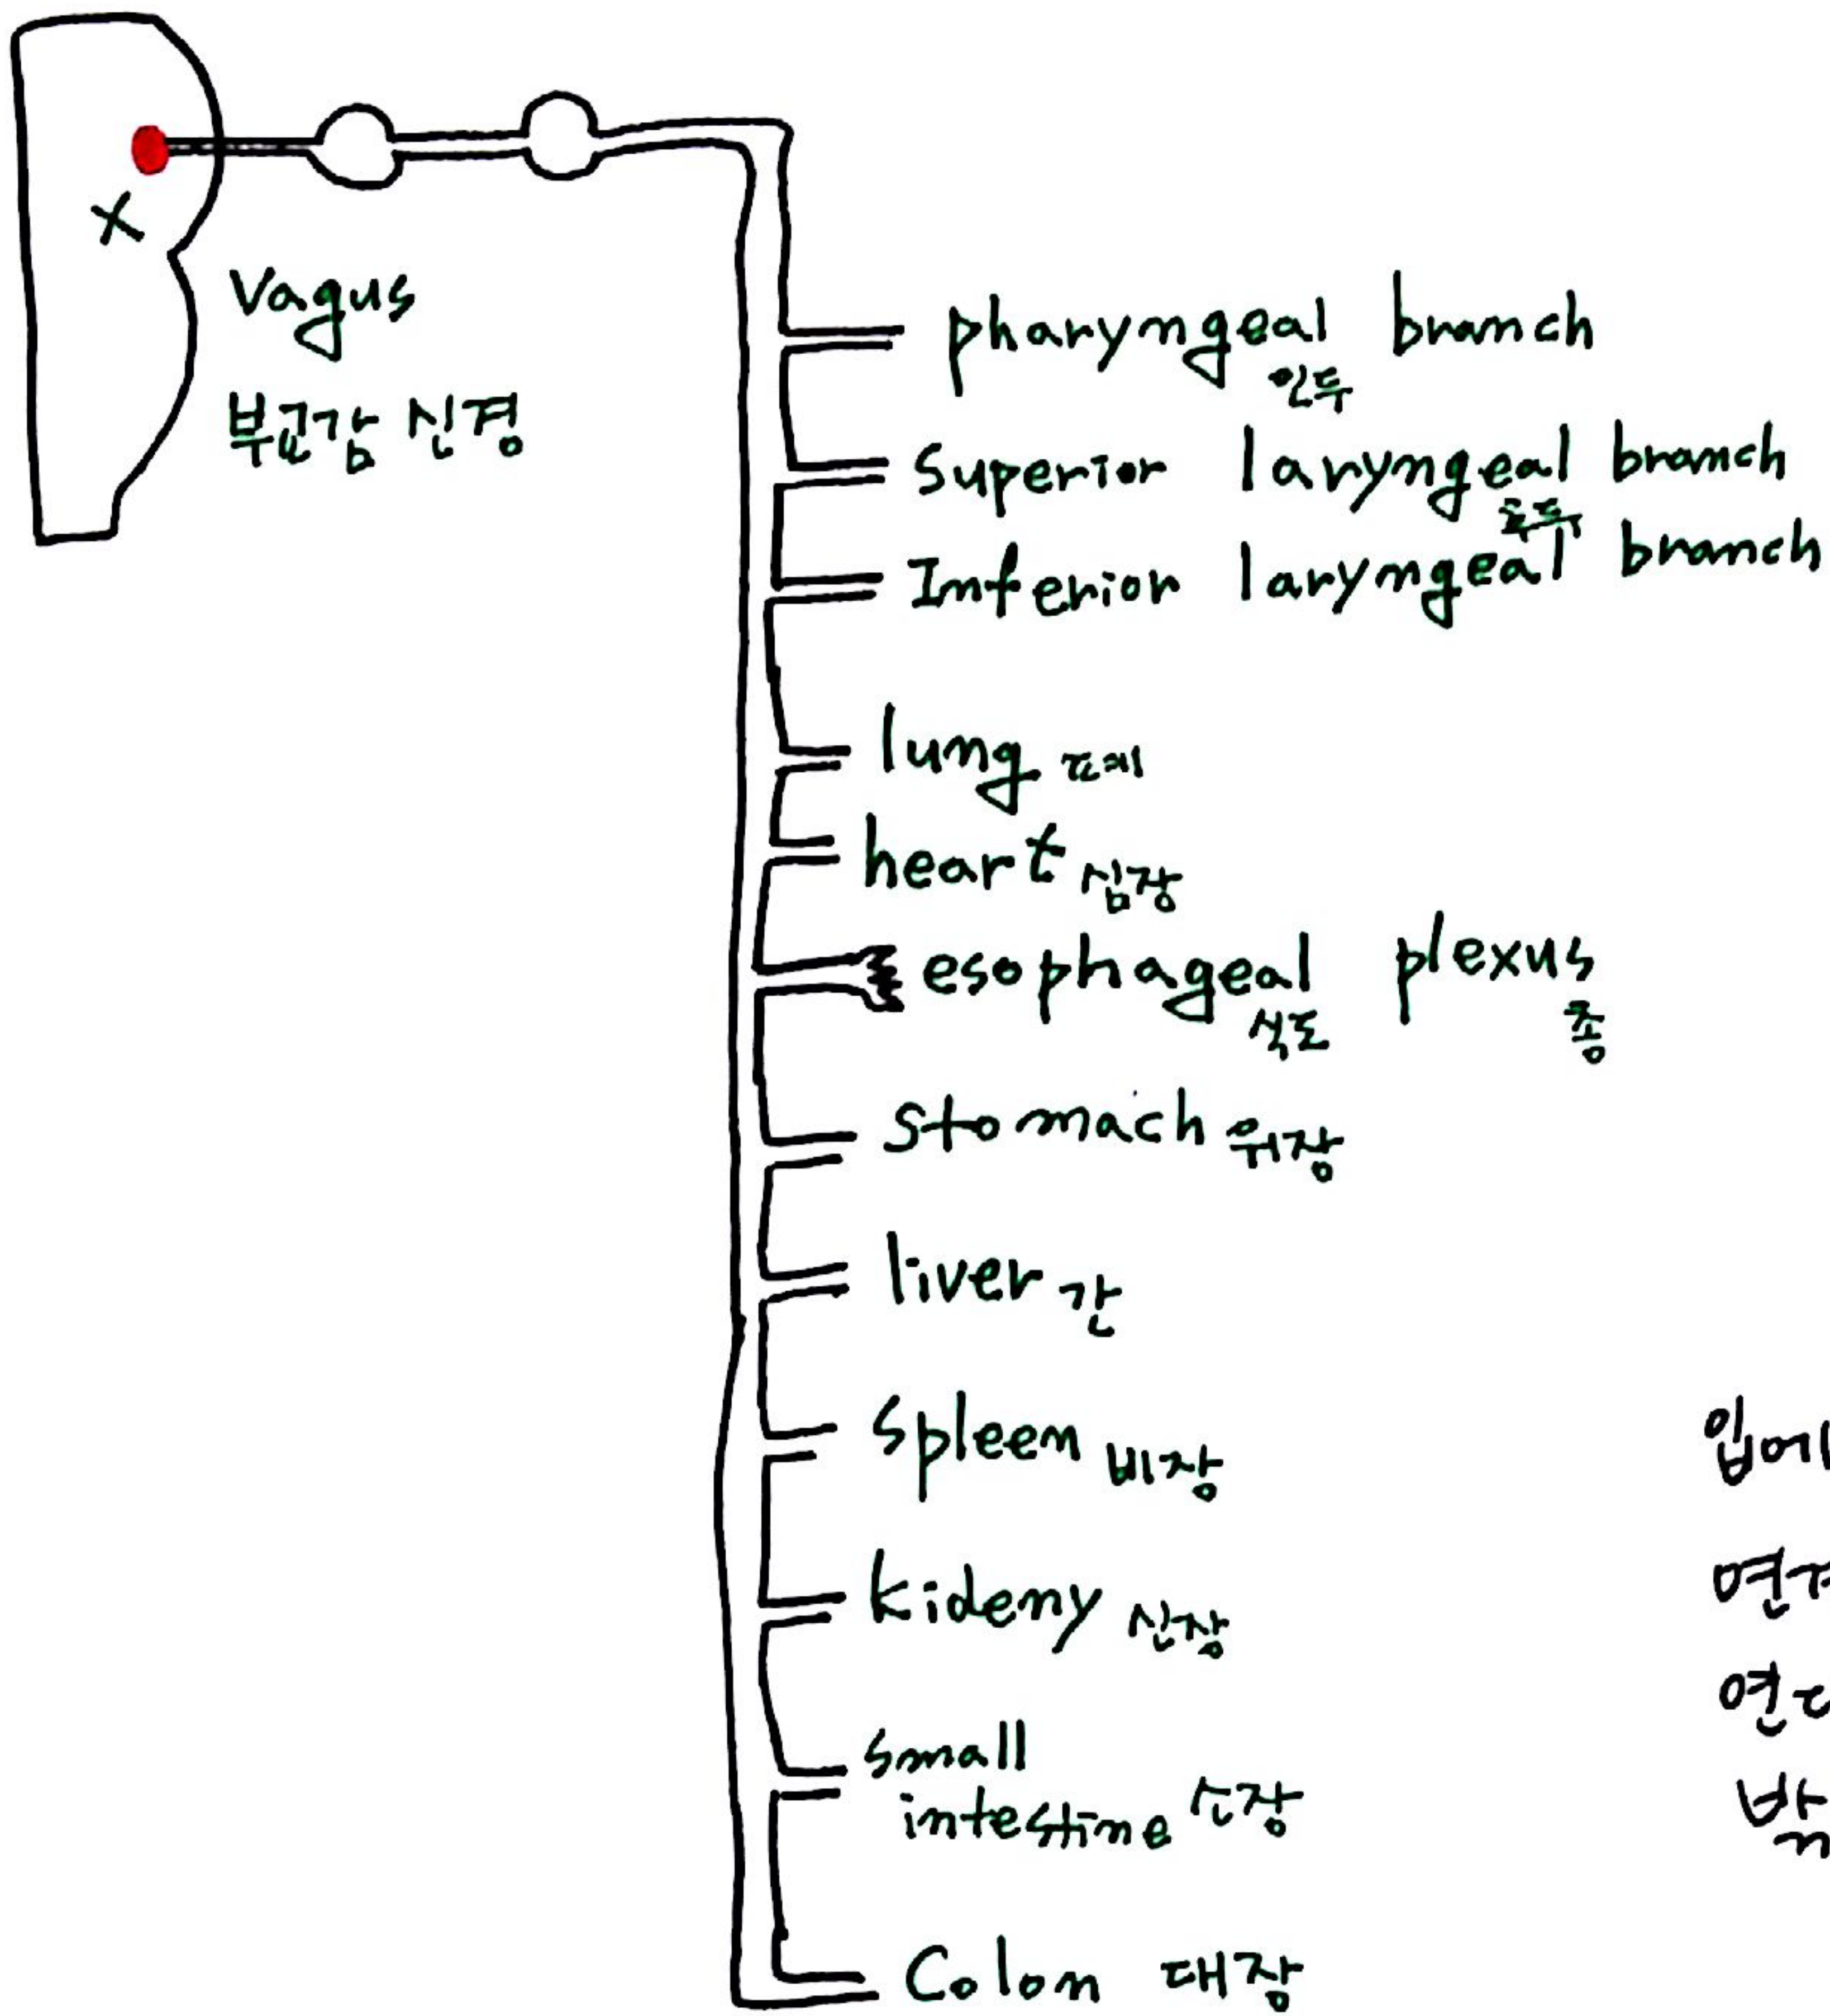 X
Vagus
부교감 신경
pharyngeal branch
인두
Superior laryngeal branch
후두
Inferior laryngeal branch
lung 폐
heart 심장
esophageal plexus
식도 총
Stomach 위장
liver 간
Spleen 비장
kideny 신장
small
intestine 소장
Colon 대장
입에
연